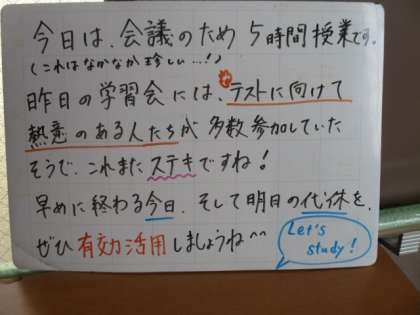 今日は、会議のため5時間授業です。
(これはなかなか珍しい…!)
昨日の学習会には、テストに向けて
熱意のある人たちが多数参加していた
そうで、これまたステキですね!
早めに終わる今日、そして明日の代休を、
ぜひ有効活用しましょうね^^
Let's
study!